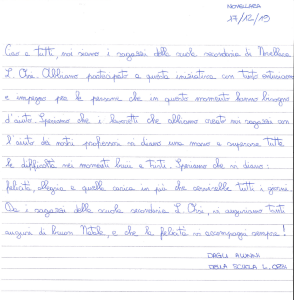 NOVELLARA
17/12/19
Ciao a tutti, noi siamo i ragazzi della scuola secondaria di Novellara
L. Orsi. Abbiamo partecipato a questa iniziativa con tanto entusiasmo
e impegno per le persone che in questo momento hanno bisogno
d'aiuto. Speriamo che i lavoretti che abbiamo creato noi ragazzi con
l'aiuto dei nostri professori vi diano una mano a superare tutte
le difficoltà nei momenti bui e tristi. Speriamo che vi diano:
felicità, allegria e quella carica in più che servirebbe tutti i giorni.
Da i ragazzi della scuola secondaria L. Orsi, vi auguriamo tanti
auguri di buon Natale, e che la felicità vi accompagni sempre!
DAGLI ALUNNI
DELLA SCUOLA L. ORSI